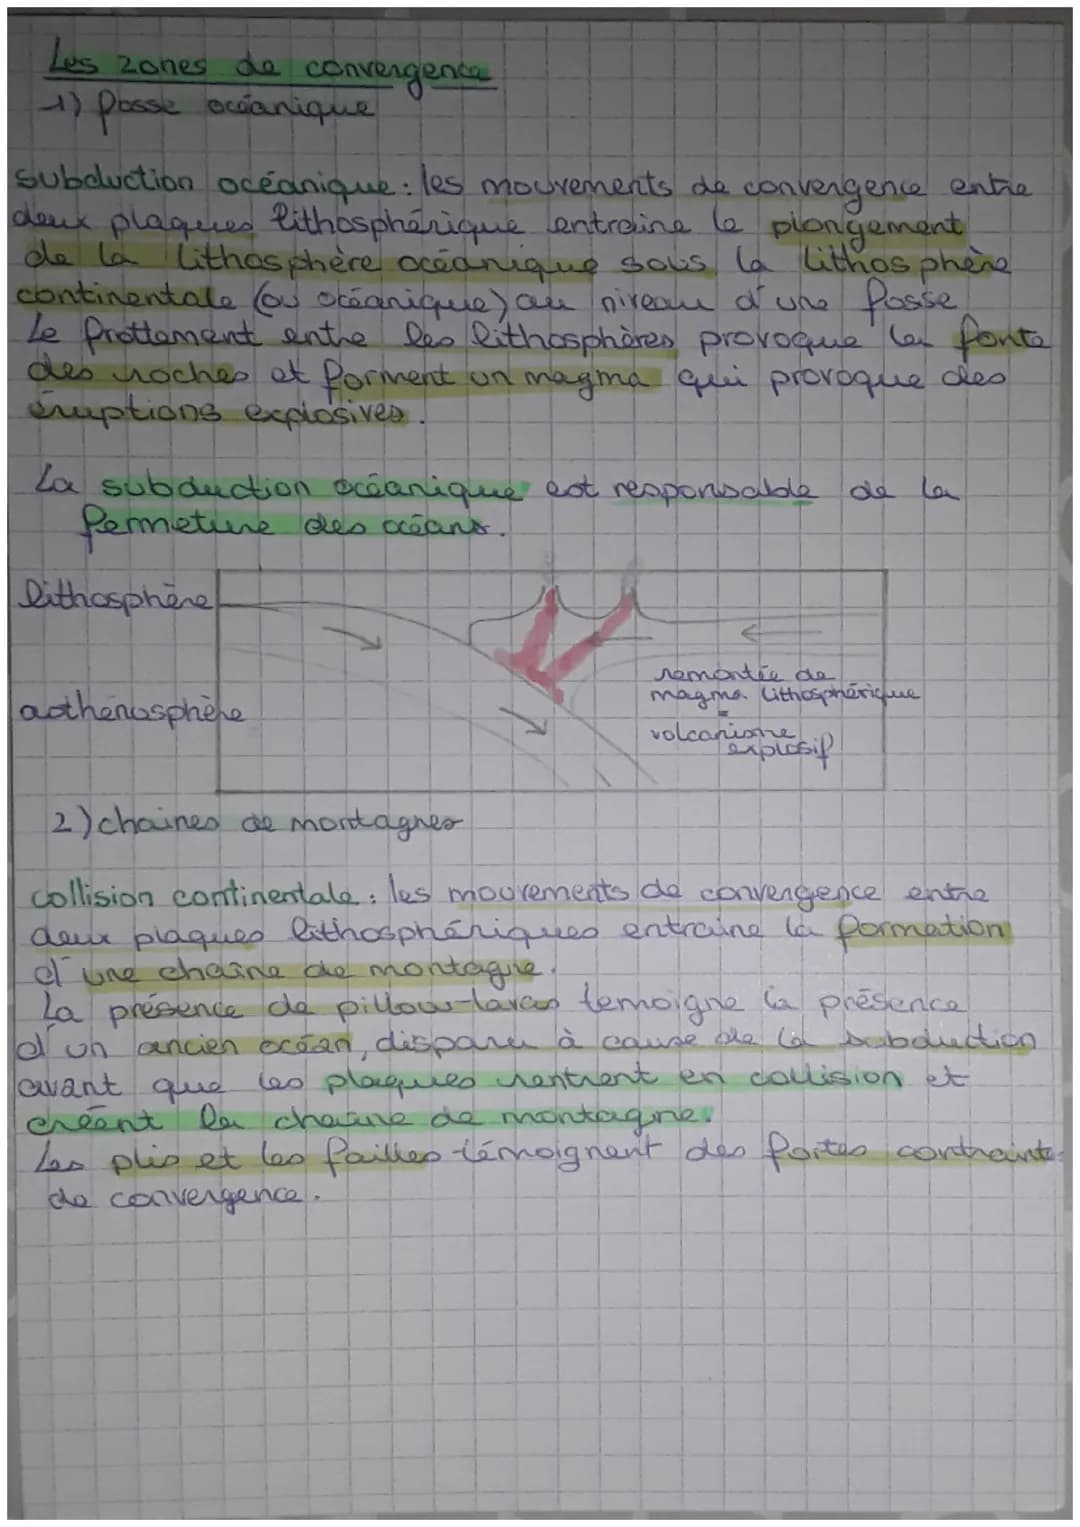 Les zones de convergence
1) fosse océanique
subduction océanique : les mouvements de convergence entre
deux plaques lithosphérique entraine le plongement
de la lithosphère océanique sous la lithosphère
continentale (ou océanique) au niveau d'une fosse
Le frottement entre les lithosphères provoque la fonte
des roches et forment un magma qui provoque des
éruptions explosives.
La subduction océanique est responsable de la
fermeture des océans.
lithosphère
asthénosphère
remontée de
magma lithosphérique
=
volcanisme
explosif
2) chaines de montagnes
collision continentale : les mouvements de convergence entre
deux plaques lithosphériques entraine la formation
d'une chaîne de montagne.
La présence de pillow-lavas temoigne la présence
d'un ancien océan, disparu à cause de la subduction
avant que les plaques rentrent en collision et
créent la chaîne de montagne.
Les plis et les failles témoignent des fortes contraintes
de convergence.